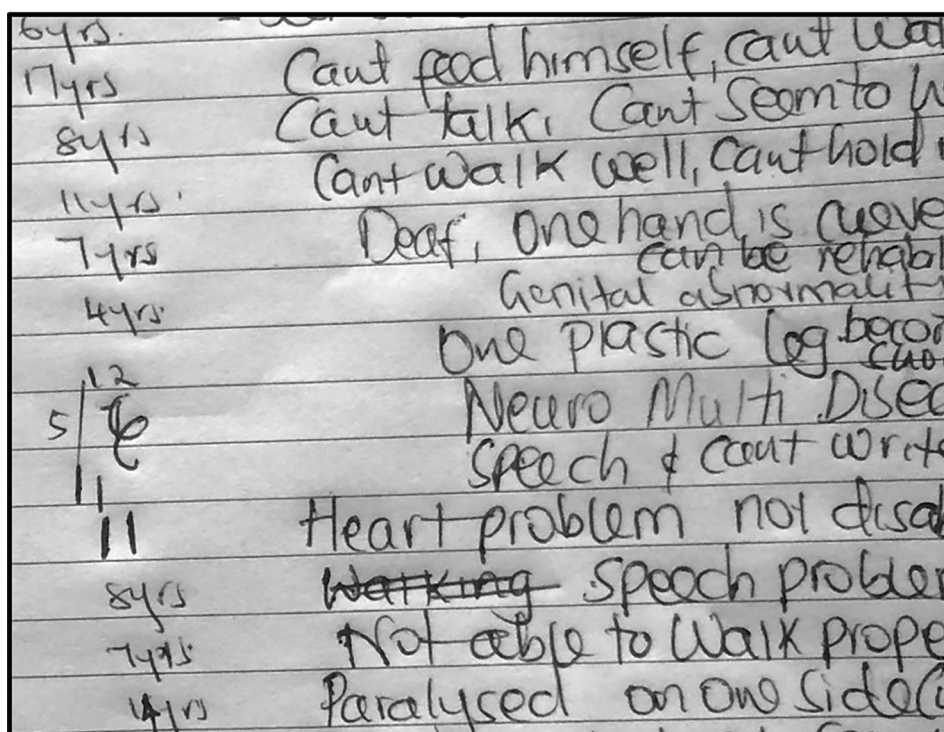 6yrs.
17yrs Cant feed himself, cant
8yrs Cant talk, Cant Seem to
11yrs. Cant walk well, cant hold
7yrs Deaf, One hand is
can be
4yrs. Genital abnormality
One plastic leg
12
5 Neuro Multi
Speech & cant write
11
11 Heart problem not
8yrs Speech problem
7yrs Not able to Walk
14yrs Paralysed on one side